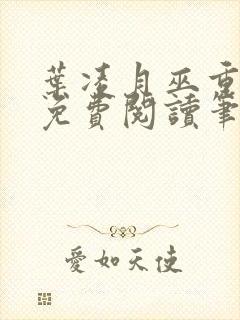 葉凌月巫重
免費閱讀筆
愛如天使